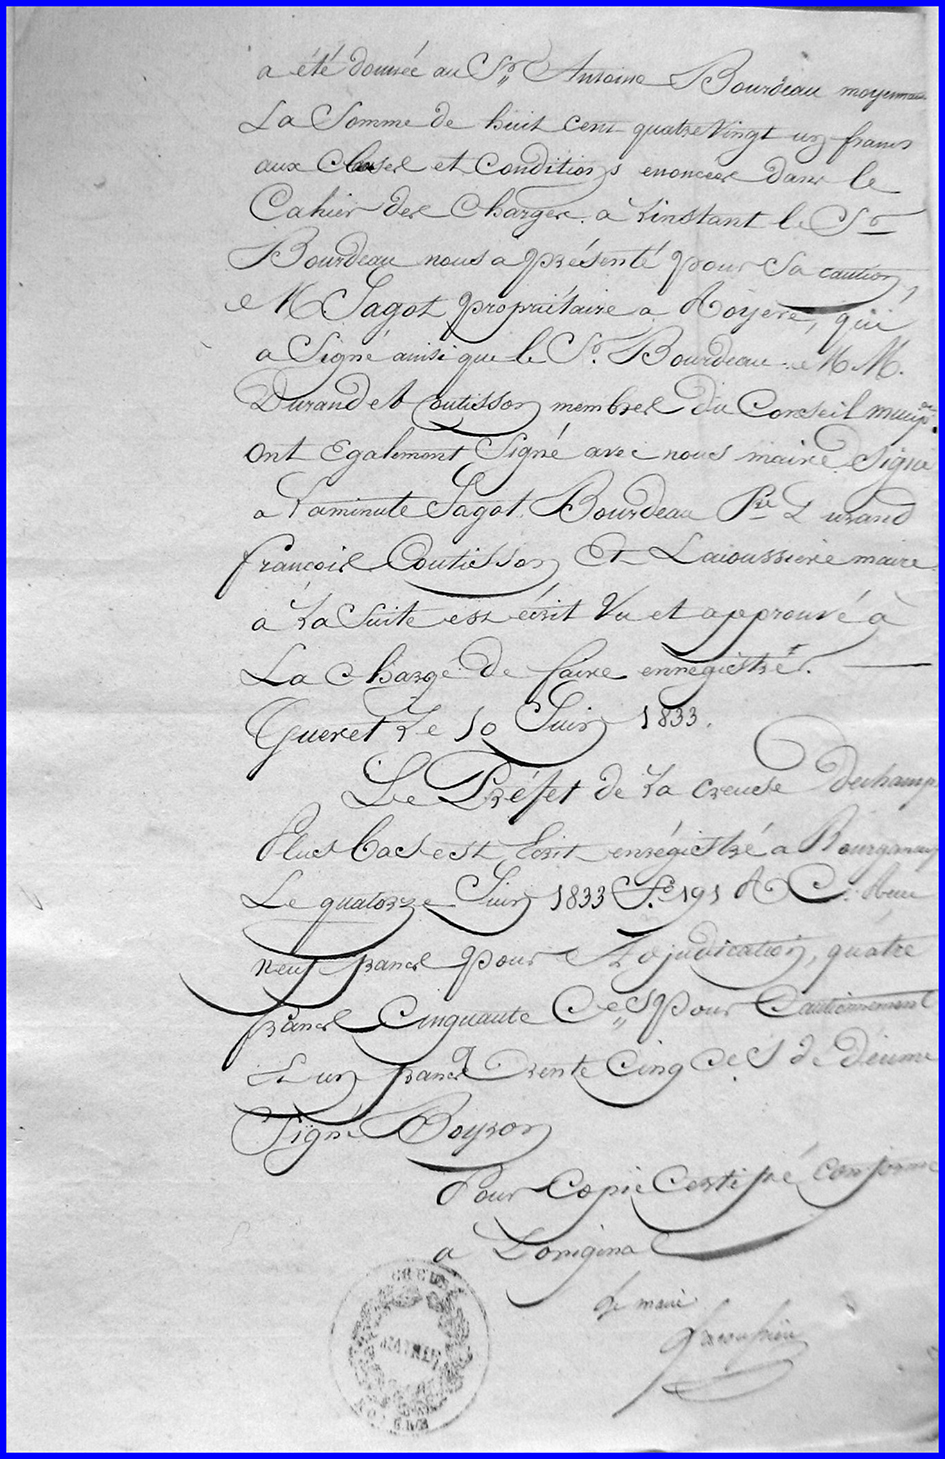 a été donnée au Sr Antoine Bourdeau moyennant
La Somme de huit cent quatre Vingt un francs
aux Clauses et Conditions enoncées dans le
Cahier des Charges. à L'instant le Sr
Bourdeau nous a présenté pour Sa caution,
M Sagot propriétaire a Royere, qui
a Signé ainsi que le Sr. Bourdeau. M M.
Durand et Coutisson membres du Conseil munip.al
ont Egalement Signé avec nous maire. Signé
a Laminute Sagot. Bourdeau Pre Durand
françois Coutisson Et Lacoussiere maire
à La Suite est écrit Vu et approuvé à
La Charge de faire enregistrér.
Gueret Le 10 Juin 1833.
Le Préfet de La creuse Dechamps
Plus bas est Ecrit enrégistré a Bourganeuf
Le quatorze Juin 1833 F.o 191 R C.
neuf francs pour Adjudication, quatre
francs Cinquante Ces pour Cautionnement
Et un francs Trente Cinq Ces de Décime
Signé Boyron
Pour Copie Certifié conforme
a Loriginal
Le maire
Lacoussière
CREUSE
MAIRIE
ROYERE